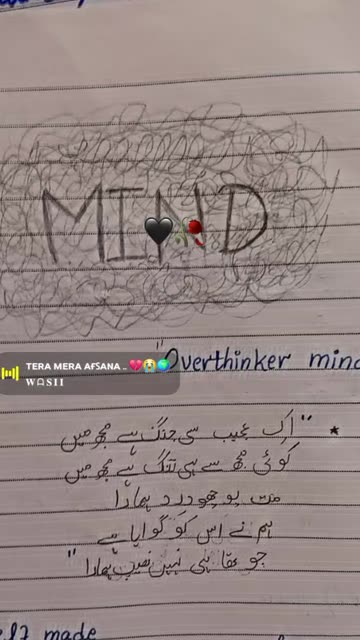 MIND
TERA MERA AFSANA ..
WASII
"Overthinker mind
* "اک عجیب سی جنگ ہے مجھ میں
کوئی مجھ سے ہی تنگ ہے مجھ میں
مت پوچھو درد ہمارا
ہم نے اس کو گوایا ہے
جو تھا ہی نہیں نصیب ہمارا"
made